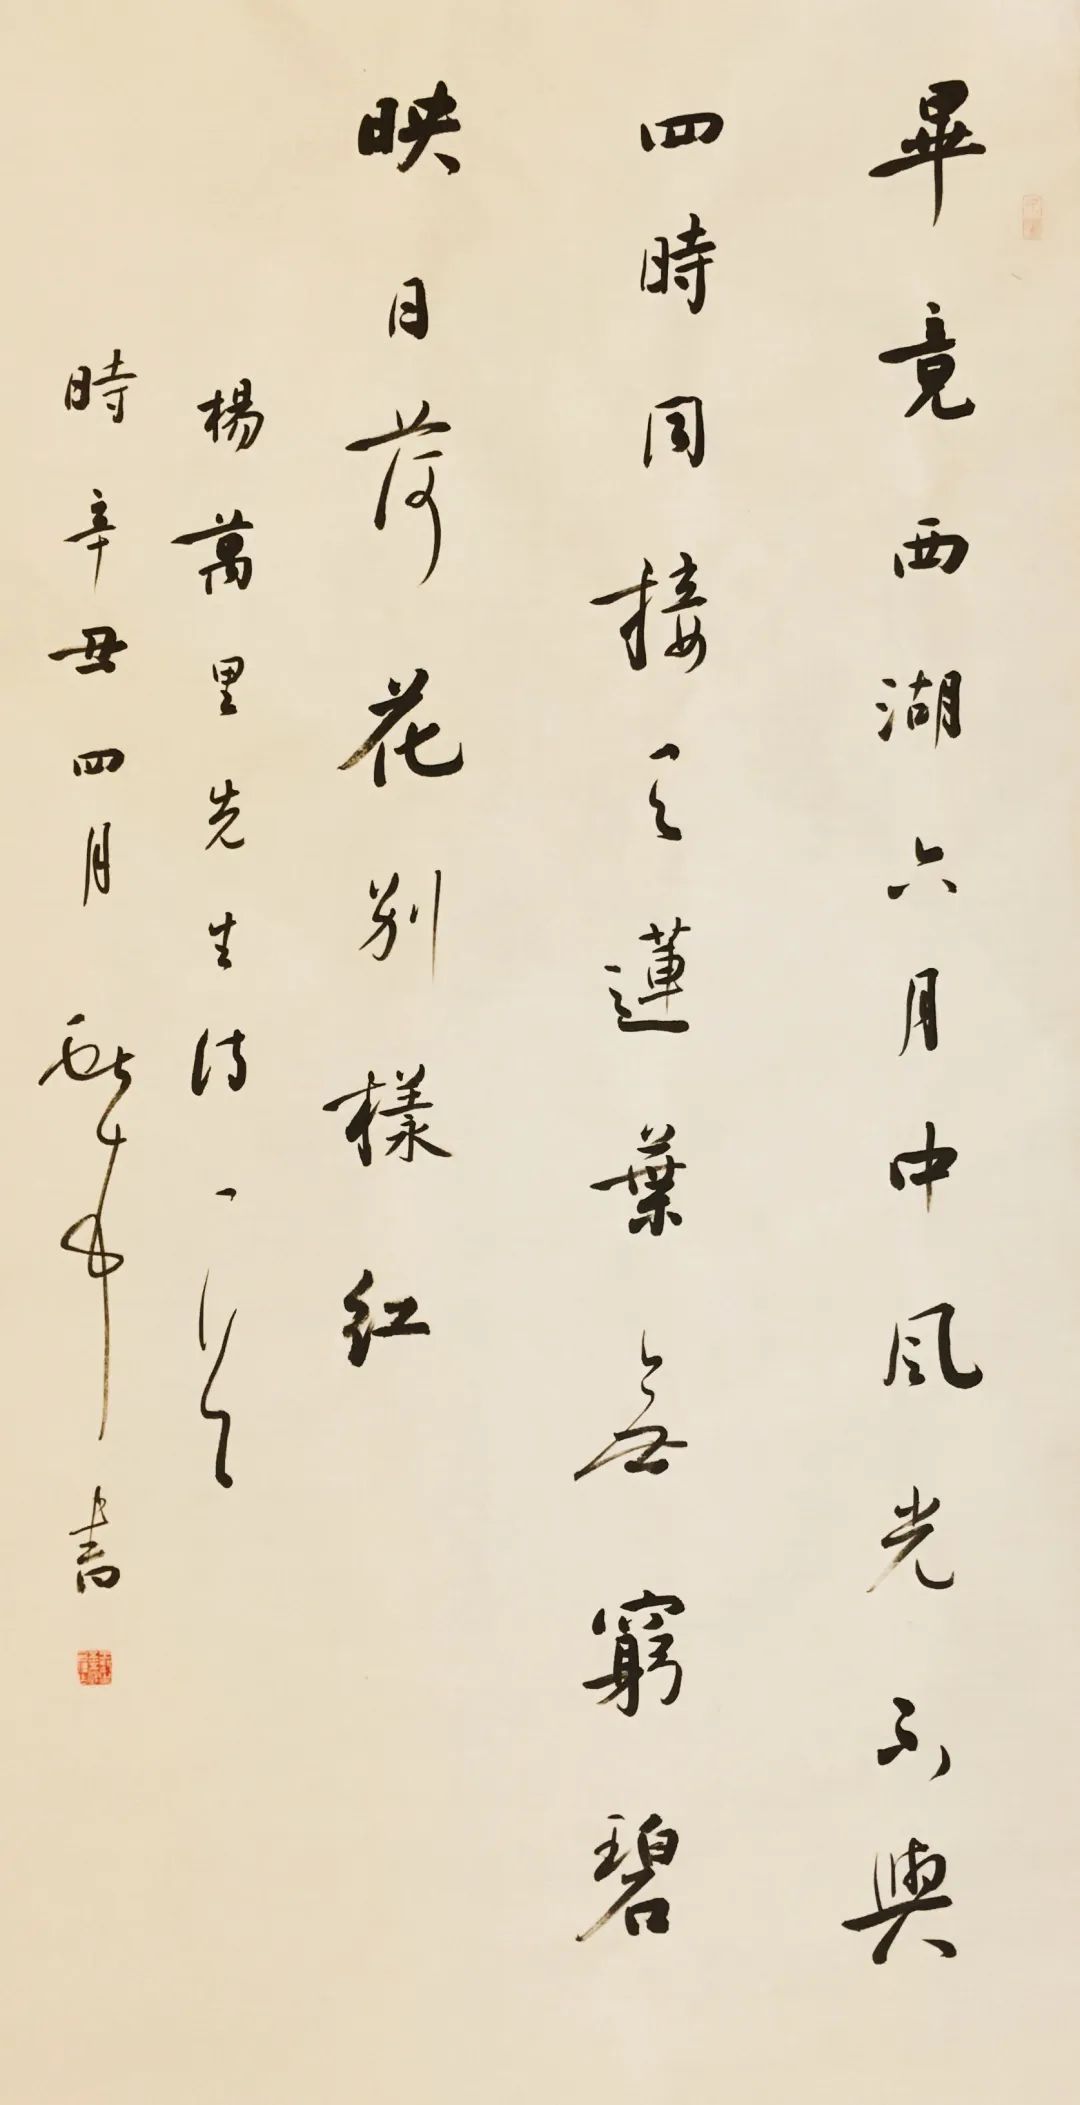 畢竟西湖六月中風光不與
四時同接天蓮葉無窮碧
映日荷花別樣紅
楊萬里先生詩一首
時辛丑四月 書